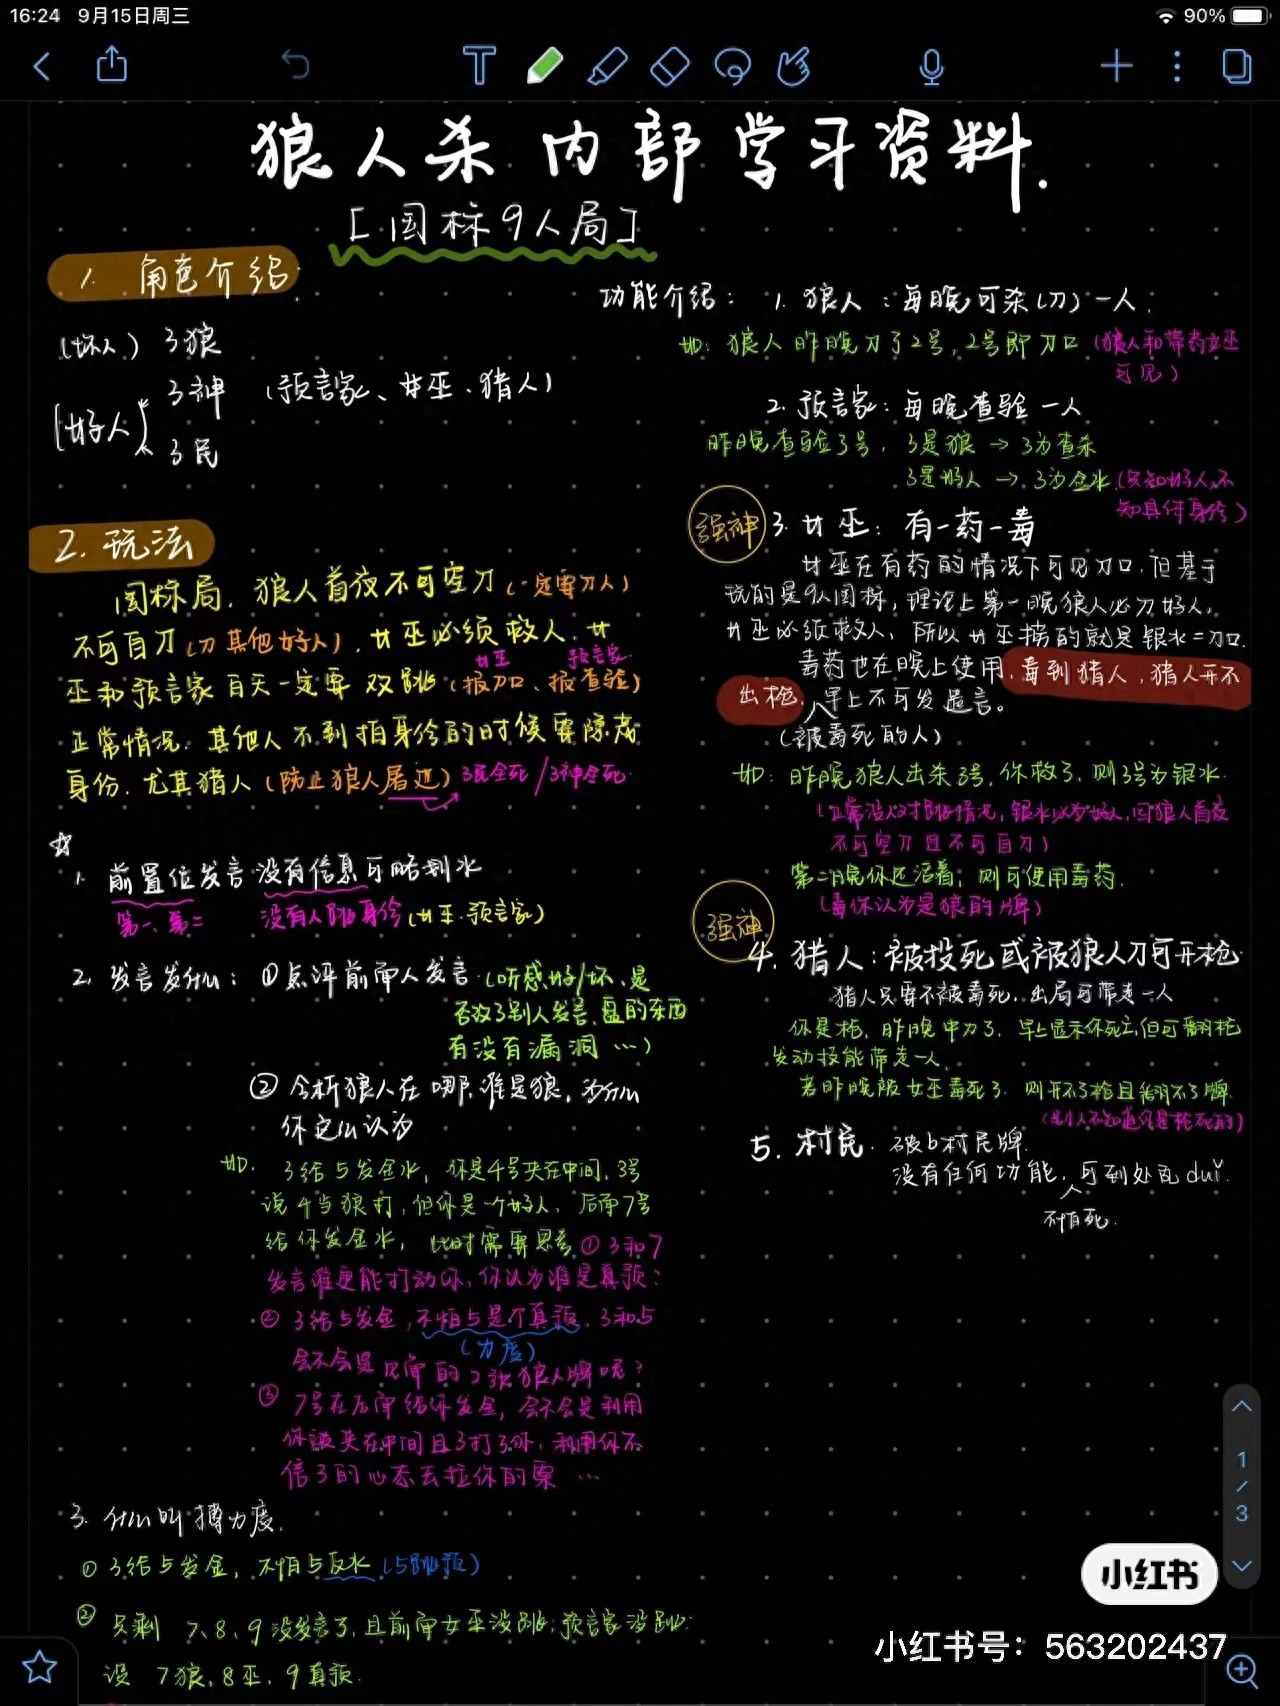 16:24 9月15日周三
90%
狼人杀 内部学习资料.
[国标9人局]
1. 角色介绍:
(坏人) 3狼
3神 (预言家、女巫、猎人)
(好人)
3民
2. 玩法
国标局, 狼人首夜不可空刀(一定要刀人)
不可自刀(刀其他好人), 女巫必须救人, 女
女巫 预言家
巫和预言家白天一定要双跳(报刀口、报查验)
正常情况, 其他人不到拍身份的时候要隐藏
身份, 尤其猎人(防止狼人屠边) 3民全死/3神全死
1. 前置位发言没有信息可略划水
第一、第二 没有人跳身份(女巫、预言家)
2. 发言发什么: ①点评前面人发言(听感好/坏、是
否攻了别人发言、盘的东西
有没有漏洞 …)
② 分析狼人在哪,谁是狼,为什么
你这么认为
如. 3给5发金水, 你是4号夹在中间, 3号
说4当狼打, 但你是一个好人, 后面7号
给你发金水, 此时需要思考 ① 3和7
发言谁更能打动你, 你认为谁是真预?
② 3给5发金, 不怕5是个真预, 3和5
(力度)
会不会是见面的2张狼人牌呢?
③ 7号在后面给你发金, 会不会是利用
你被夹在中间且3打了你, 利用你不
信3的心态去拉你的票 …
3. 什么叫搏力度.
① 3给5发金, 不怕5反水(5跳预)
② 只剩 7、8、9没发言了, 且前面女巫没跳, 预言家没跳.
设 7狼, 8巫, 9真预.
功能介绍: 1. 狼人: 每晚可杀(刀)一人.
如: 狼人昨晚刀了2号, 2号即刀口 (狼人和带药女巫
可见)
2. 预言家: 每晚查验一人
昨晚查验3号, 3是狼 → 3为查杀
3是好人 → 3为金水 (只知好人,不
知具体身份)
强神 3. 女巫: 有一药一毒
女巫在有药的情况下可见刀口, 但基于
玩的是9人国标, 理论上第一晚狼人必刀好人,
女巫必须救人, 所以女巫捞的就是银水=刀口.
毒药也在晚上使用, 毒到猎人, 猎人开不
出枪, 早上不可发遗言。
(被毒死的人)
如: 昨晚狼人击杀3号, 你救了, 则3号为银水.
(正常没双对跳情况, 银水必为好人, 因狼人首夜
不可空刀且不可自刀)
第二晚你还活着, 则可使用毒药.
(毒你认为是狼的牌)
强神
4. 猎人: 被投死或被狼人刀可开枪.
猎人只要不被毒死, 出局可带走一人
你是枪, 昨晚中刀了, 早上显示你死亡, 但可翻枪
发动技能带走一人.
若昨晚被女巫毒死了, 则开不了枪且翻不了牌.
5. 村民. 破b村民牌.
没有任何功能, 可到处乱duǐ.
不怕死.
1
/
3
小红书
小红书号: 563202437